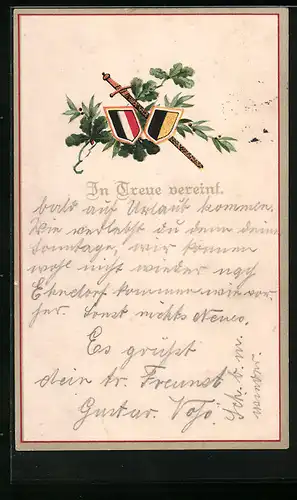 In Treue vereint.
bald auf Urlaub kommen.
Wie verlebst du denn deine
Sonntage, wir können
wohl nicht wieder nach
Ekendorf kommen wie vor
her. Sonst nichts Neues.
Es grüßt
dein tr. Freund
Gustav. Voß.
Sch. b. m.
wieder